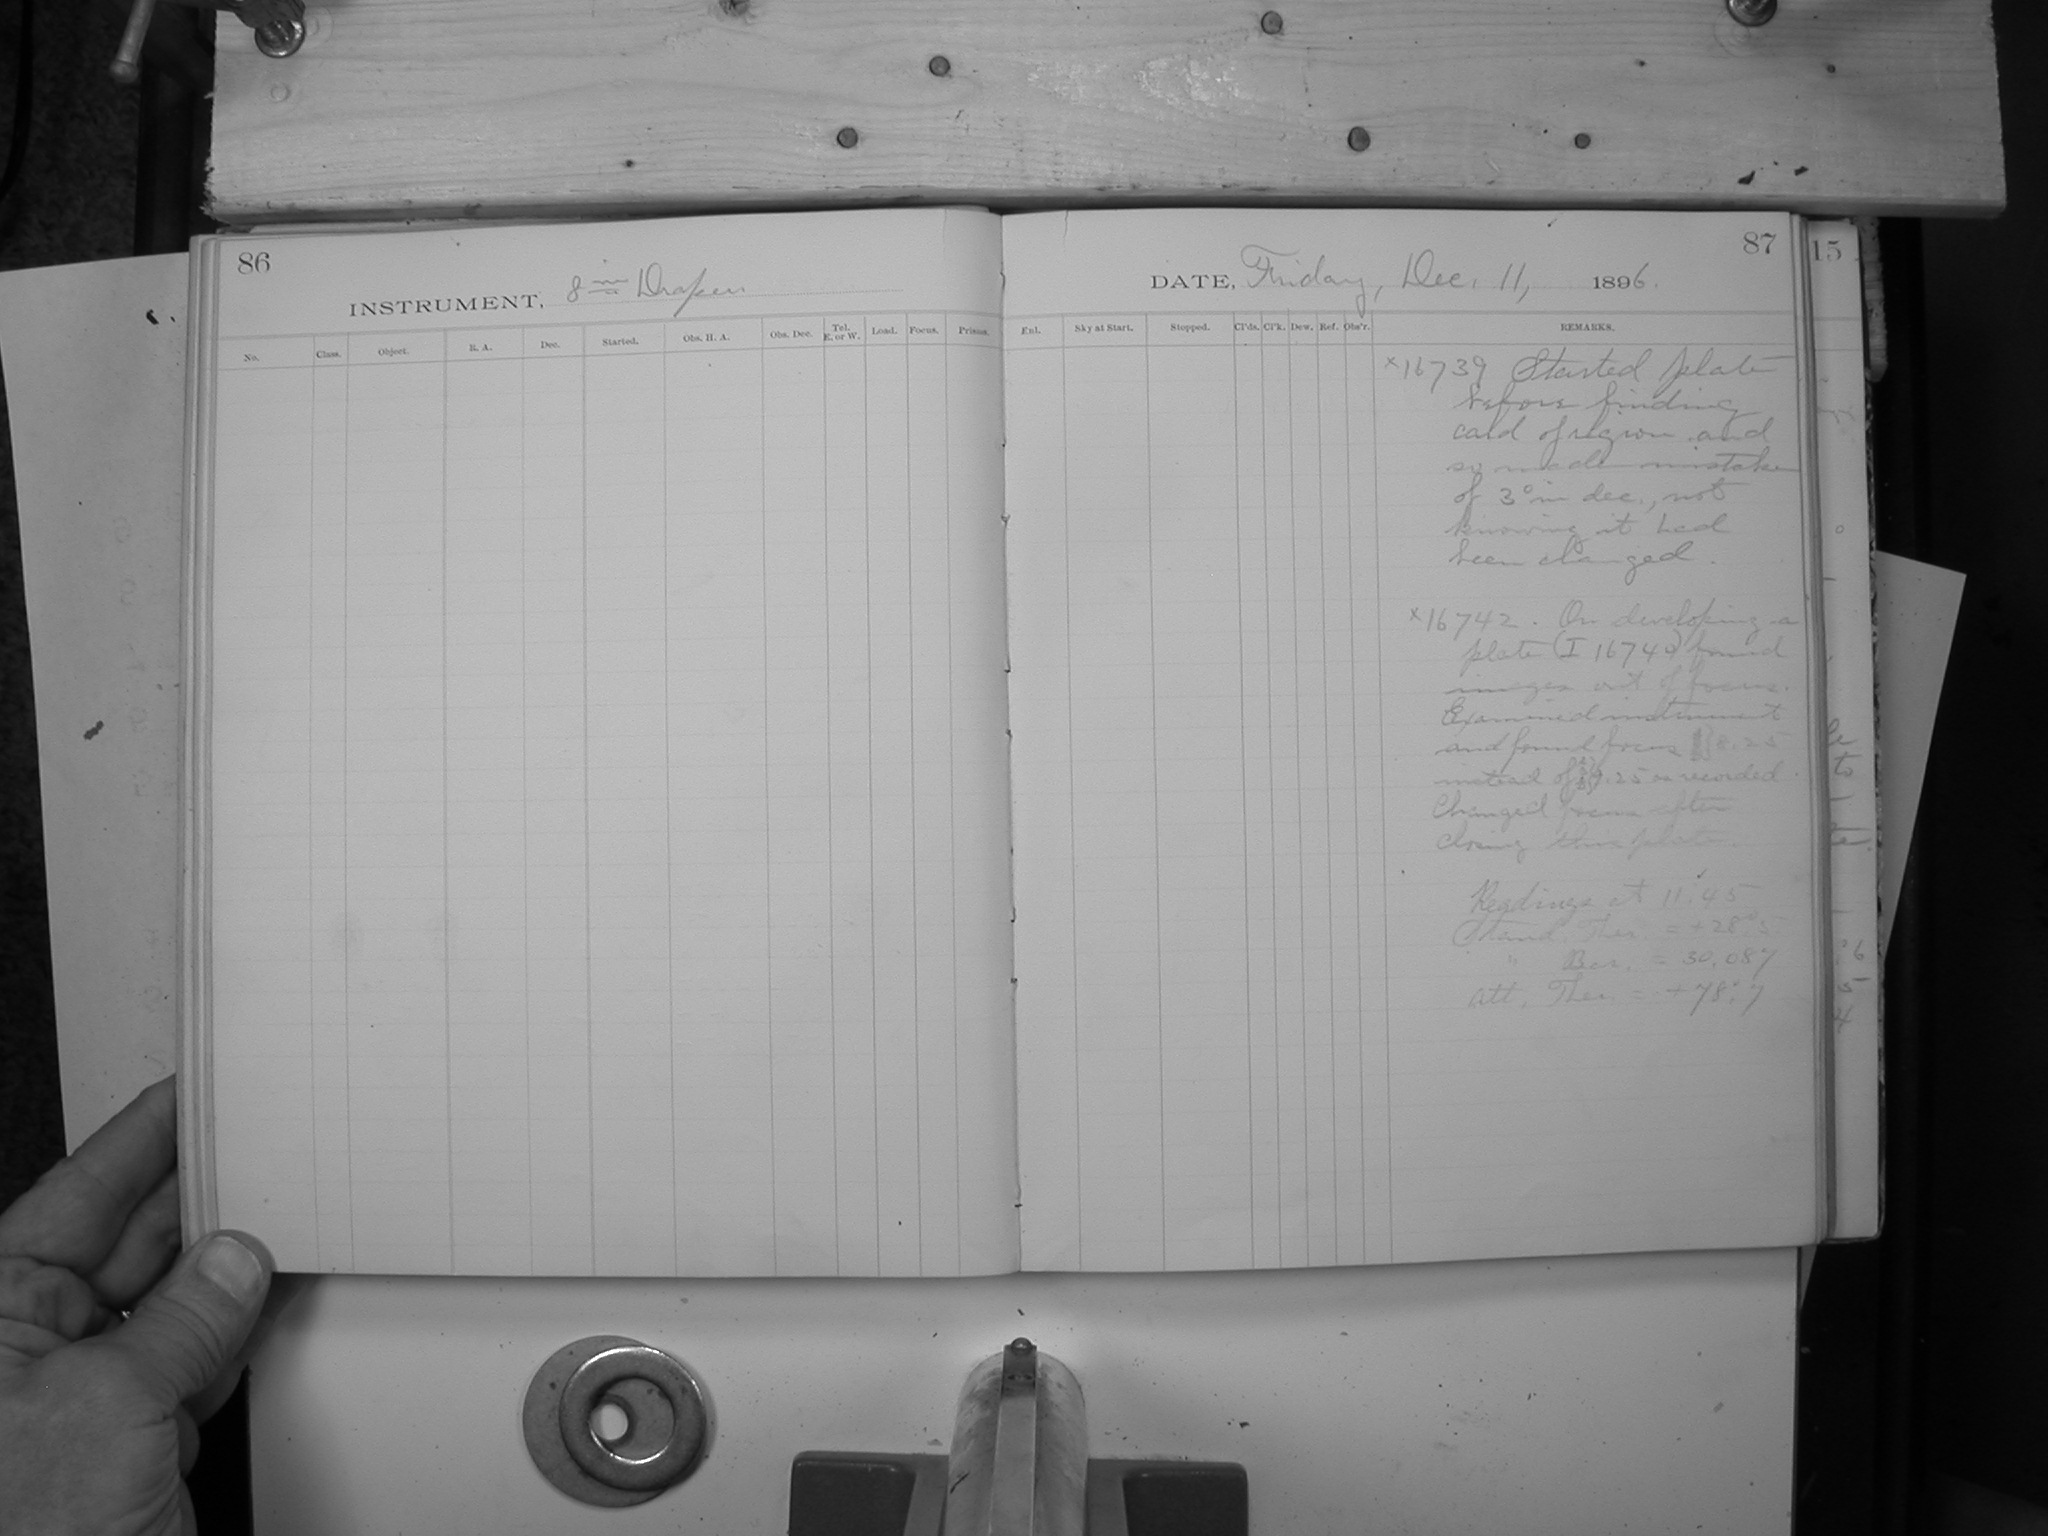 86
INSTRUMENT, 8 in Draper
No. Class. Object. R. A. Dec. Started. Obs. H. A. Obs. Dec. Tel. E. or W. Load. Focus. Prisms.
87
DATE, Friday, Dec. 11, 1896.
Ext. Sky at Start. Stopped. Cl'ds. Cl'k. Dew. Ref. Obs'r. REMARKS.
x16739 Started plate
before finding
card of region and
so made mistake
of 3° in dec., not
knowing it had
been changed.
x16742. On developing a
plate (I 16740) found
images out of focus.
Examined instrument
and found focus 8.25
instead of 9.25 as recorded
Changed focus after
closing this plate.
Readings at 11.45
Stand. Ther. = +28°.5
" Bar. = 30.087
Att. Ther. = +78°.7
15